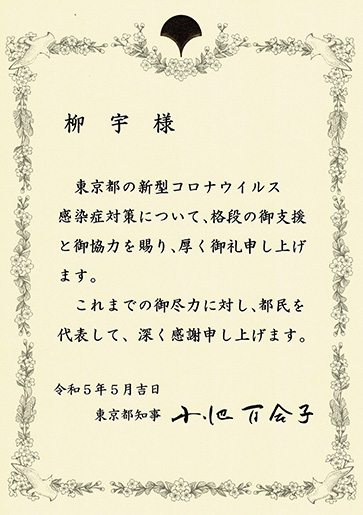 柳宇様
東京都の新型コロナウイルス
感染症対策について、格段の御支援
と御協力を賜り、厚く御礼申し上げ
ます。
これまでの御尽力に対し、都民を
代表して、深く感謝申し上げます。
令和5年5月吉日
東京都知事 小池百合子